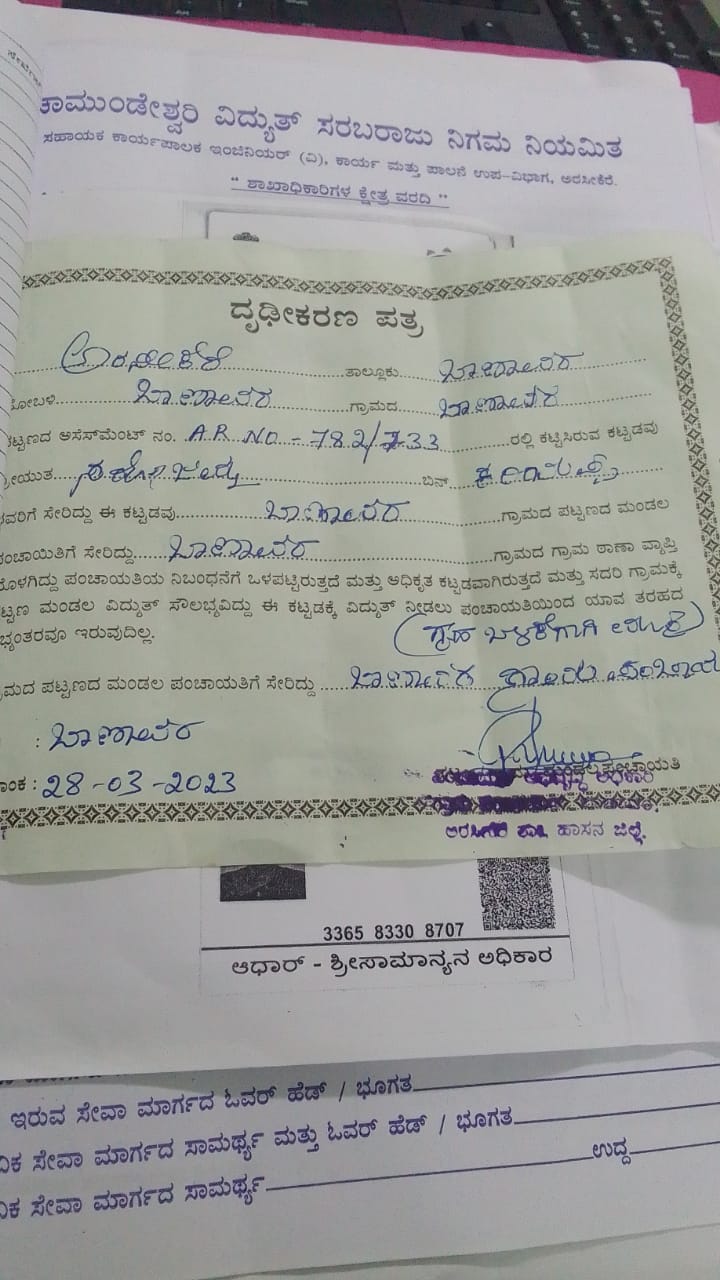 ಚಾಮುಂಡೇಶ್ವರಿ ವಿದ್ಯುತ್ ಸರಬರಾಜು ನಿಗಮ ನಿಯಮಿತ
ಸಹಾಯಕ ಕಾರ್ಯಪಾಲಕ ಇಂಜಿನಿಯರ್ (ವಿ), ಕಾರ್ಯ ಮತ್ತು ಪಾಲನೆ ಉಪ-ವಿಭಾಗ, ಅರಸೀಕೆರೆ.
" ಶಾಖಾಧಿಕಾರಿಗಳ ಕ್ಷೇತ್ರ ವರದಿ "
ದೃಢೀಕರಣ ಪತ್ರ
ಅರಸೀಕೆರೆ ತಾಲ್ಲೂಕು ಬಾಣಾವರ
ಹೋಬಳಿ ಬಾಣಾವರ ಗ್ರಾಮದ ಬಾಣಾವರ
ಪಟ್ಟಣದ ಅಸೆಸ್‌ಮೆಂಟ್ ನಂ. A.R. NO - 782/733 ರಲ್ಲಿ ಕಟ್ಟಿಸಿರುವ ಕಟ್ಟಡವು
ಶ್ರೀಯುತ ಬಿನ್
ಅವರಿಗೆ ಸೇರಿದ್ದು ಈ ಕಟ್ಟಡವು ಬಾಣಾವರ ಗ್ರಾಮದ ಪಟ್ಟಣದ ಮಂಡಲ
ಪಂಚಾಯಿತಿಗೆ ಸೇರಿದ್ದು ಬಾಣಾವರ ಗ್ರಾಮದ ಗ್ರಾಮ ಠಾಣಾ ವ್ಯಾಪ್ತಿ
ಯೊಳಗಿದ್ದು ಪಂಚಾಯತಿಯ ನಿಬಂಧನೆಗೆ ಒಳಪಟ್ಟಿರುತ್ತದೆ ಮತ್ತು ಅಧಿಕೃತ ಕಟ್ಟಡವಾಗಿರುತ್ತದೆ ಮತ್ತು ಸದರಿ ಗ್ರಾಮಕ್ಕೆ
ಪಟ್ಟಣ ಮಂಡಲ ವಿದ್ಯುತ್ ಸೌಲಭ್ಯವಿದ್ದು ಈ ಕಟ್ಟಡಕ್ಕೆ ವಿದ್ಯುತ್ ನೀಡಲು ಪಂಚಾಯತಿಯಿಂದ ಯಾವ ತರಹದ
ಅಭ್ಯಂತರವೂ ಇರುವುದಿಲ್ಲ.
(ಗೃಹ ಬಳಕೆಗಾಗಿ ಮಾತ್ರ)
ಗ್ರಾಮದ ಪಟ್ಟಣದ ಮಂಡಲ ಪಂಚಾಯತಿಗೆ ಸೇರಿದ್ದು ಬಾಣಾವರ ಗ್ರಾಮ ಪಂಚಾಯ
: ಬಾಣಾವರ
ದಿನಾಂಕ : 28-03-2023
ಅರಸೀಕೆರೆ ತಾ॥ ಹಾಸನ ಜಿಲ್ಲೆ.
3365 8330 8707
ಆಧಾರ್ - ಶ್ರೀಸಾಮಾನ್ಯನ ಅಧಿಕಾರ
ಇರುವ ಸೇವಾ ಮಾರ್ಗದ ಓವರ್ ಹೆಡ್ / ಭೂಗತ
ಸೇವಾ ಮಾರ್ಗದ ಸಾಮರ್ಥ್ಯ ಮತ್ತು ಓವರ್ ಹೆಡ್ / ಭೂಗತ
ಸೇವಾ ಮಾರ್ಗದ ಸಾಮರ್ಥ್ಯ ಉದ್ದ